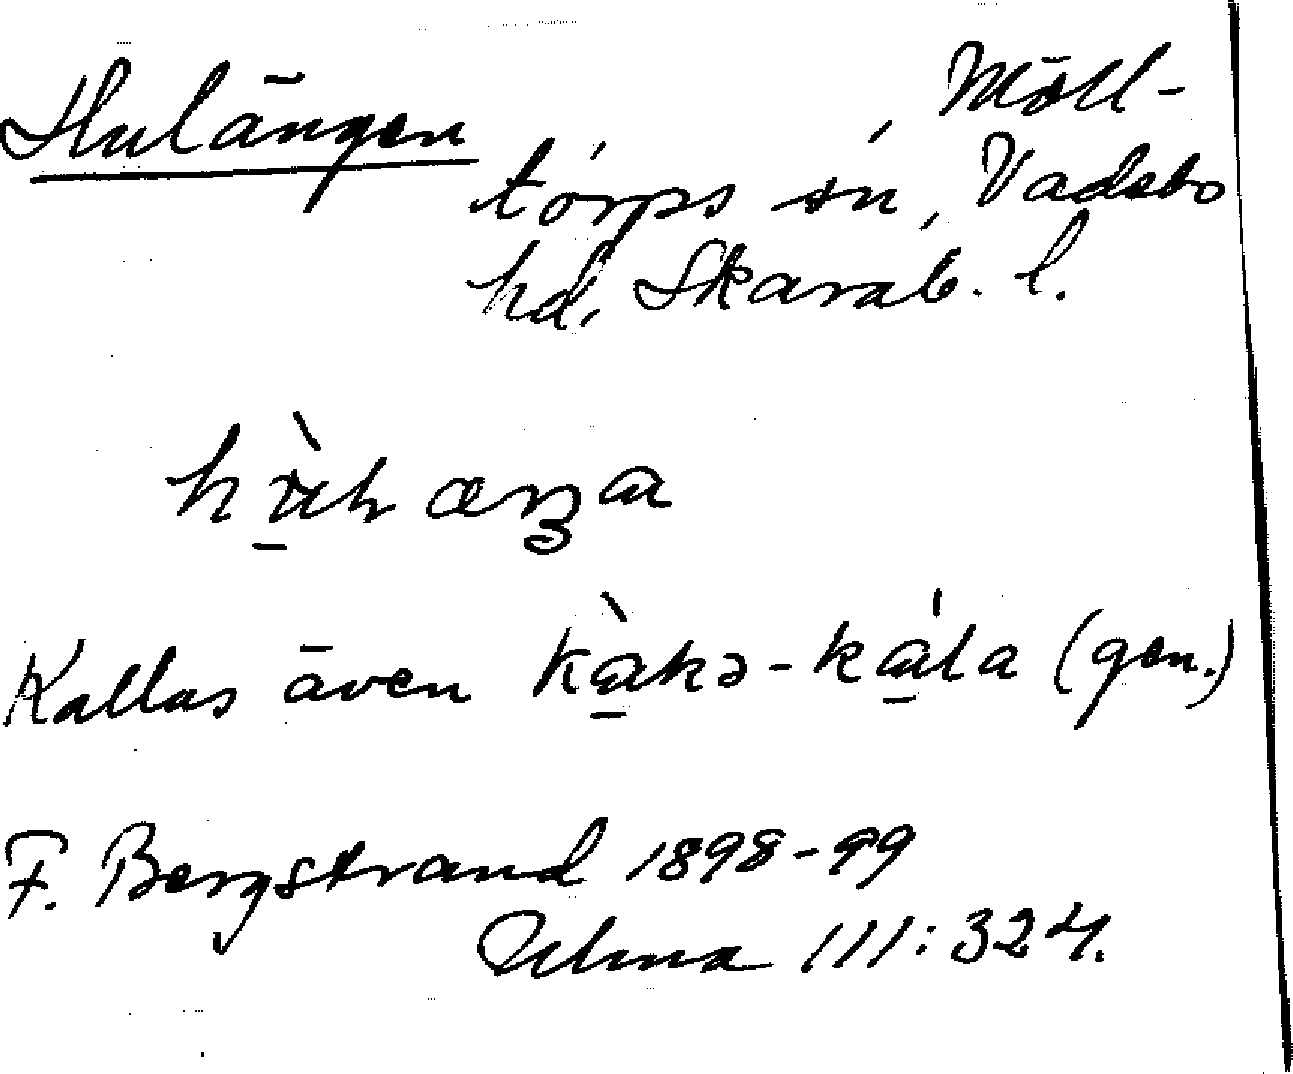 Hulängen, Möll-
torps sn, Vadsbo
hd, Skarab. l.
Kallas även kàkə-kála (gen.)
F. Bergstrand 1898-99
Ulma 111:324.